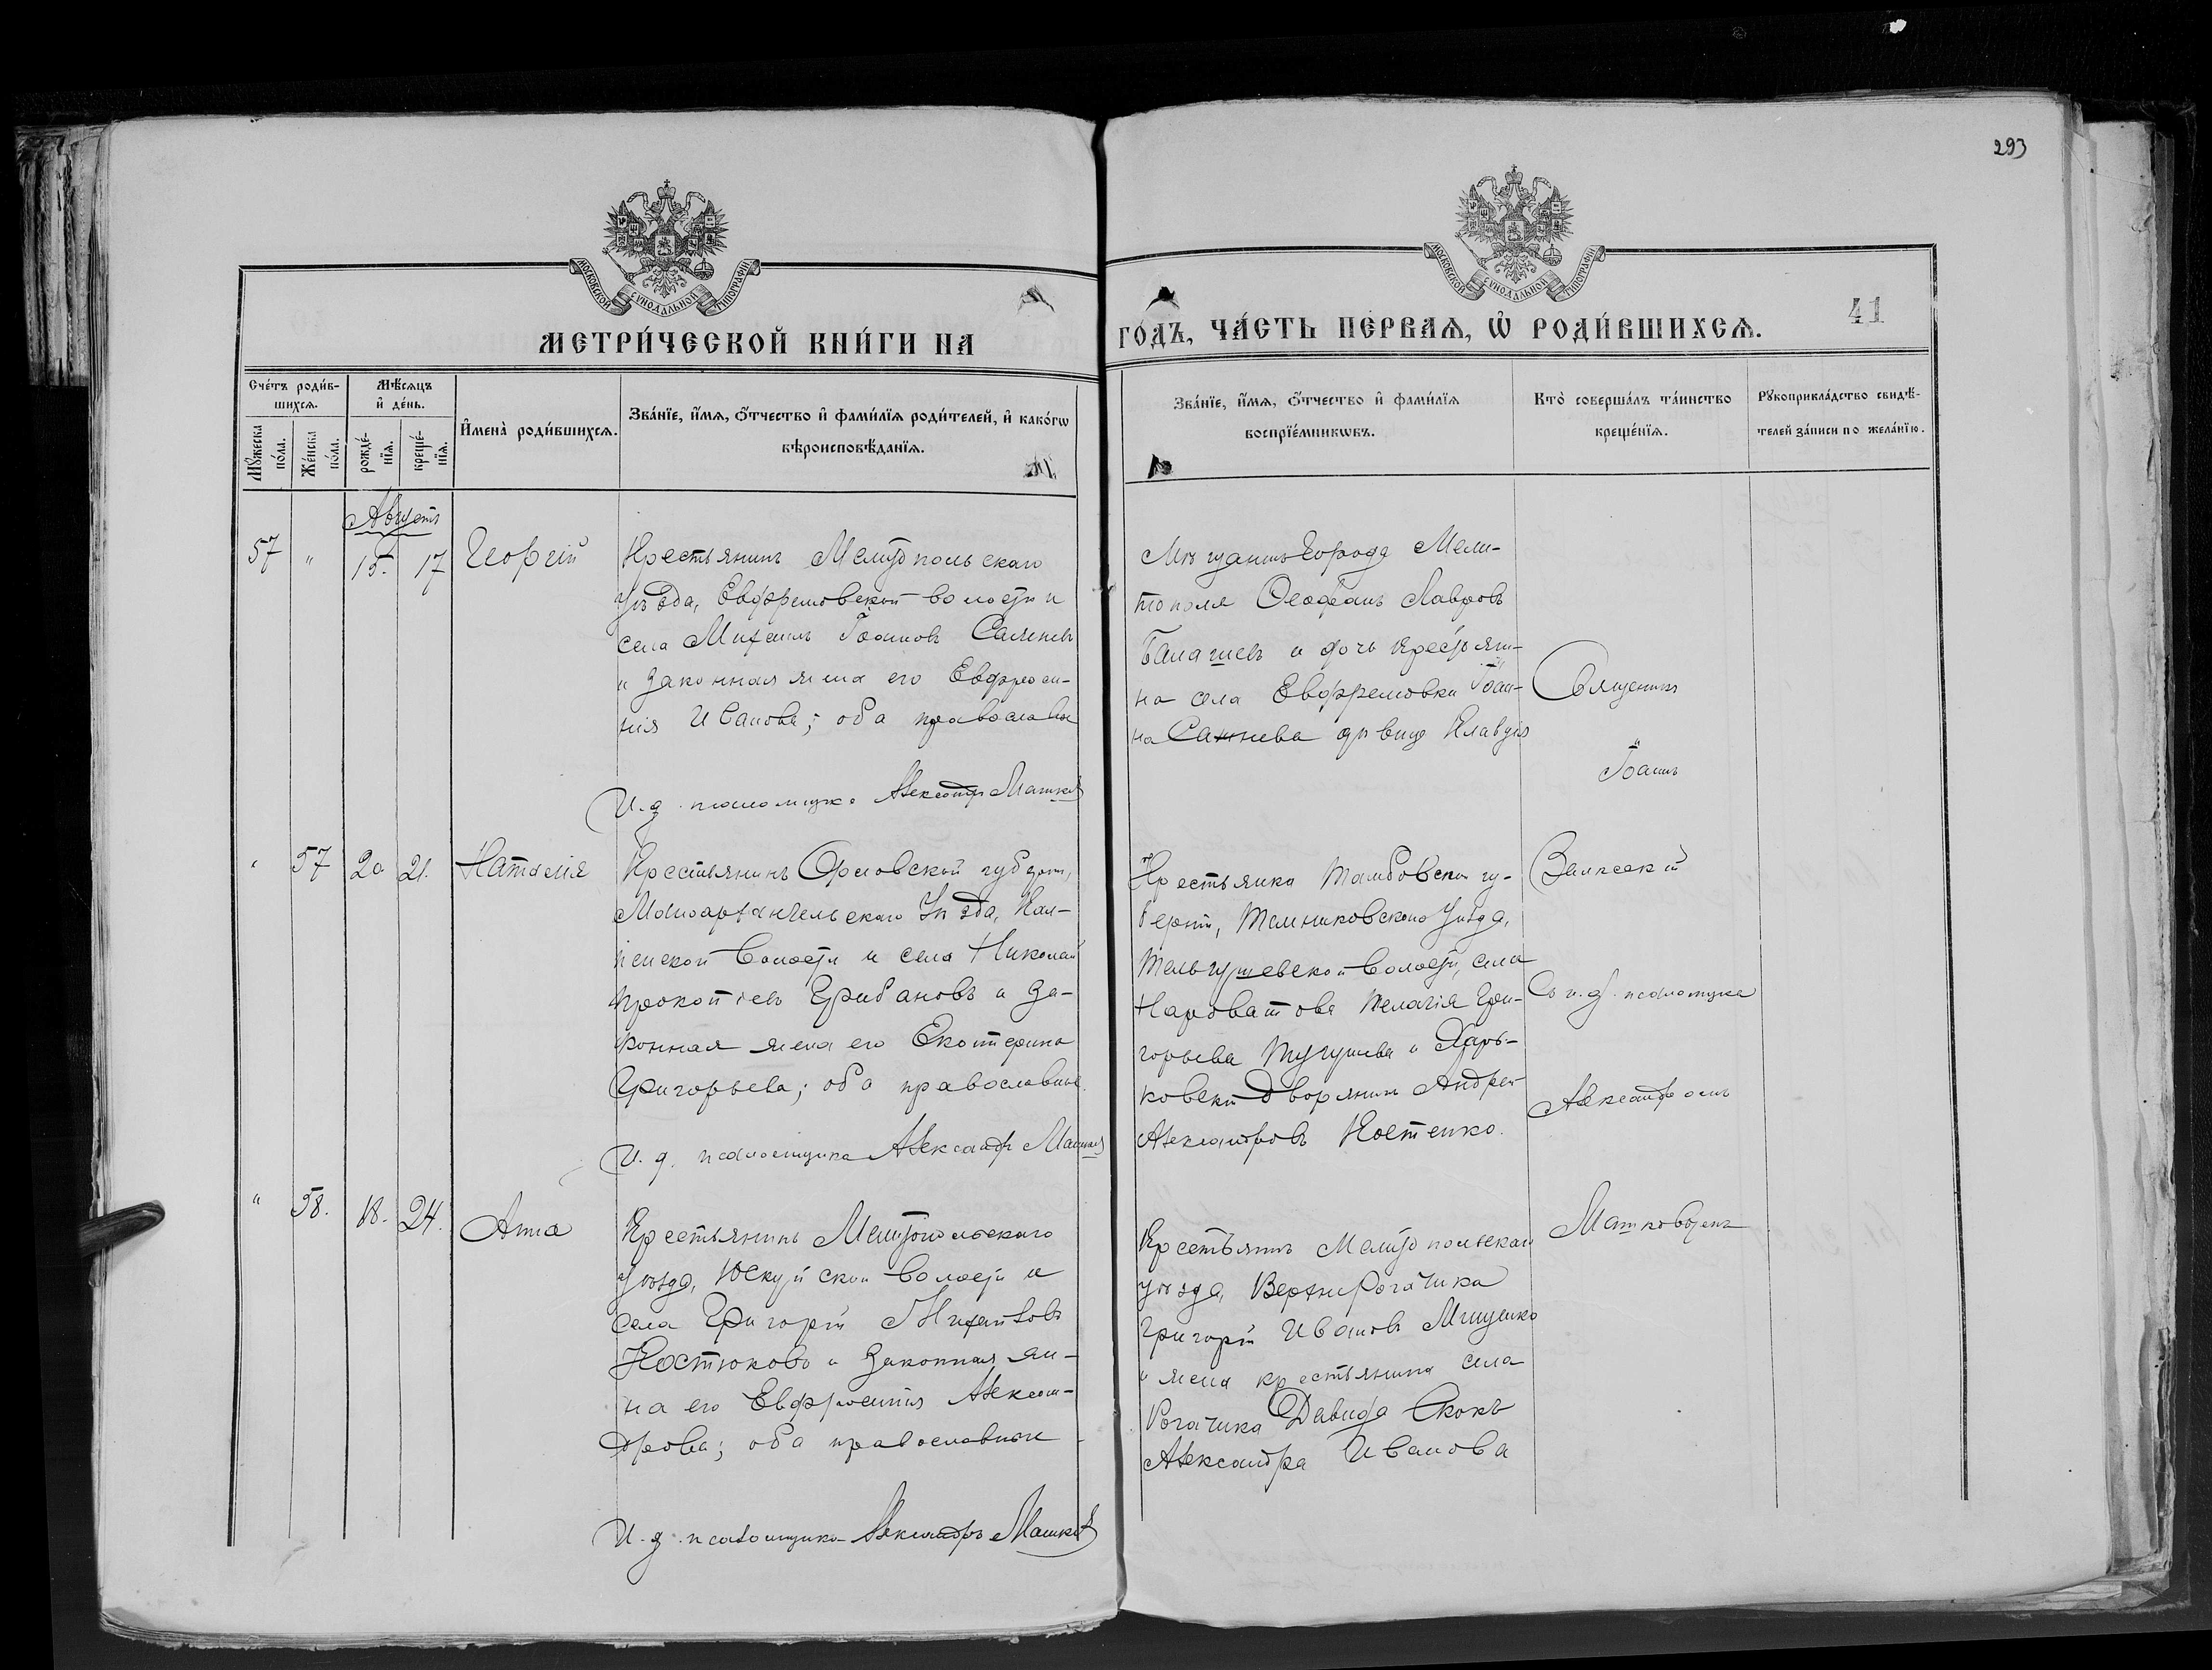 293
МОСКОВСКОЙ СѴНОДАЛЬНОЙ ТИПОГРАФІИ
МОСКОВСКОЙ СѴНОДАЛЬНОЙ ТИПОГРАФІИ
41
МЕТРИ́ЧЕСКОЙ КНИ́ГИ НА ГО́ДЪ, ЧА́СТЬ ПЕ́РВАѦ, Ѡ҆ РОДИ́ВШИХСѦ.
Сче́тъ роди́в-
шихсѧ.
Мѣ́сѧцъ
и҆ де́нь.
Мꙋ́жеска
по́ла.
Же́нска
по́ла.
рожде́-
нїѧ.
креще́-
нїѧ.
И҆мена̀ роди́вшихсѧ.
Зва́нїе, и҆́мѧ, ѻ҆́тчество и҆ фами́лїѧ роди́телей, и҆ како́гѡ
вѣроисповѣ́данїѧ.
Зва́нїе, и҆́мѧ, ѻ҆́тчество и҆ фами́лїѧ
воспрїе́мникѡвъ.
Кто̀ соверша́лъ та́инство
креще́нїѧ.
Рꙋкоприкла́дство свидѣ́-
телей за́писи по жела́нїю.
Августъ
57 " 15. 17 Георгій
Крестьянинъ Мелитопольскаго
уѣзда, Евфремовской волости и
села Михаилъ Іоанновъ
и законная жена его Евфроси-
нія Иванова; оба православн
И. д. псаломщика Александръ Машков
Мѣщанинъ города Мели-
тополя Ѳеофанъ Лавровъ
Балашевъ и дочь крестьяни-
на села Евфремовки Іоан-
на дѣвица Клавдія
Священникъ
Іоаннъ
" 57 20 21. Наталія
Крестьянинъ Орловской губерніи,
Малоархангельскаго Уѣзда,
волости и села Николай
Прокопіевъ Грибановъ и за-
конная жена его Екатерина
Григорьева; оба православные.
И. д. псаломщика Александръ Машков
Крестьянка Тамбовской гу-
берніи, Темниковскаго Уѣзда,
волости, села
Нароватова Пелагія Гри-
горьева Тугушева и Харь-
ковскій Дворянинъ Андрей
Александровъ Костенко.
Съ и. д. псаломщика
Александромъ
" 58. 18. 24. Анна
Крестьянинъ Мелитопольскаго
уѣзда, волости и
села Григорій
Костюковъ и законная же-
на его Евфросинія Алексан-
дрова; оба православные
И. д. псаломщика Александръ Машков
Крестьянинъ Мелитопольскаго
уѣзда, Верхн Рогачика
Григорій Ивановъ Мищенко
и жена крестьянина села
Рогачика Давида Скокъ
Александра Иванова